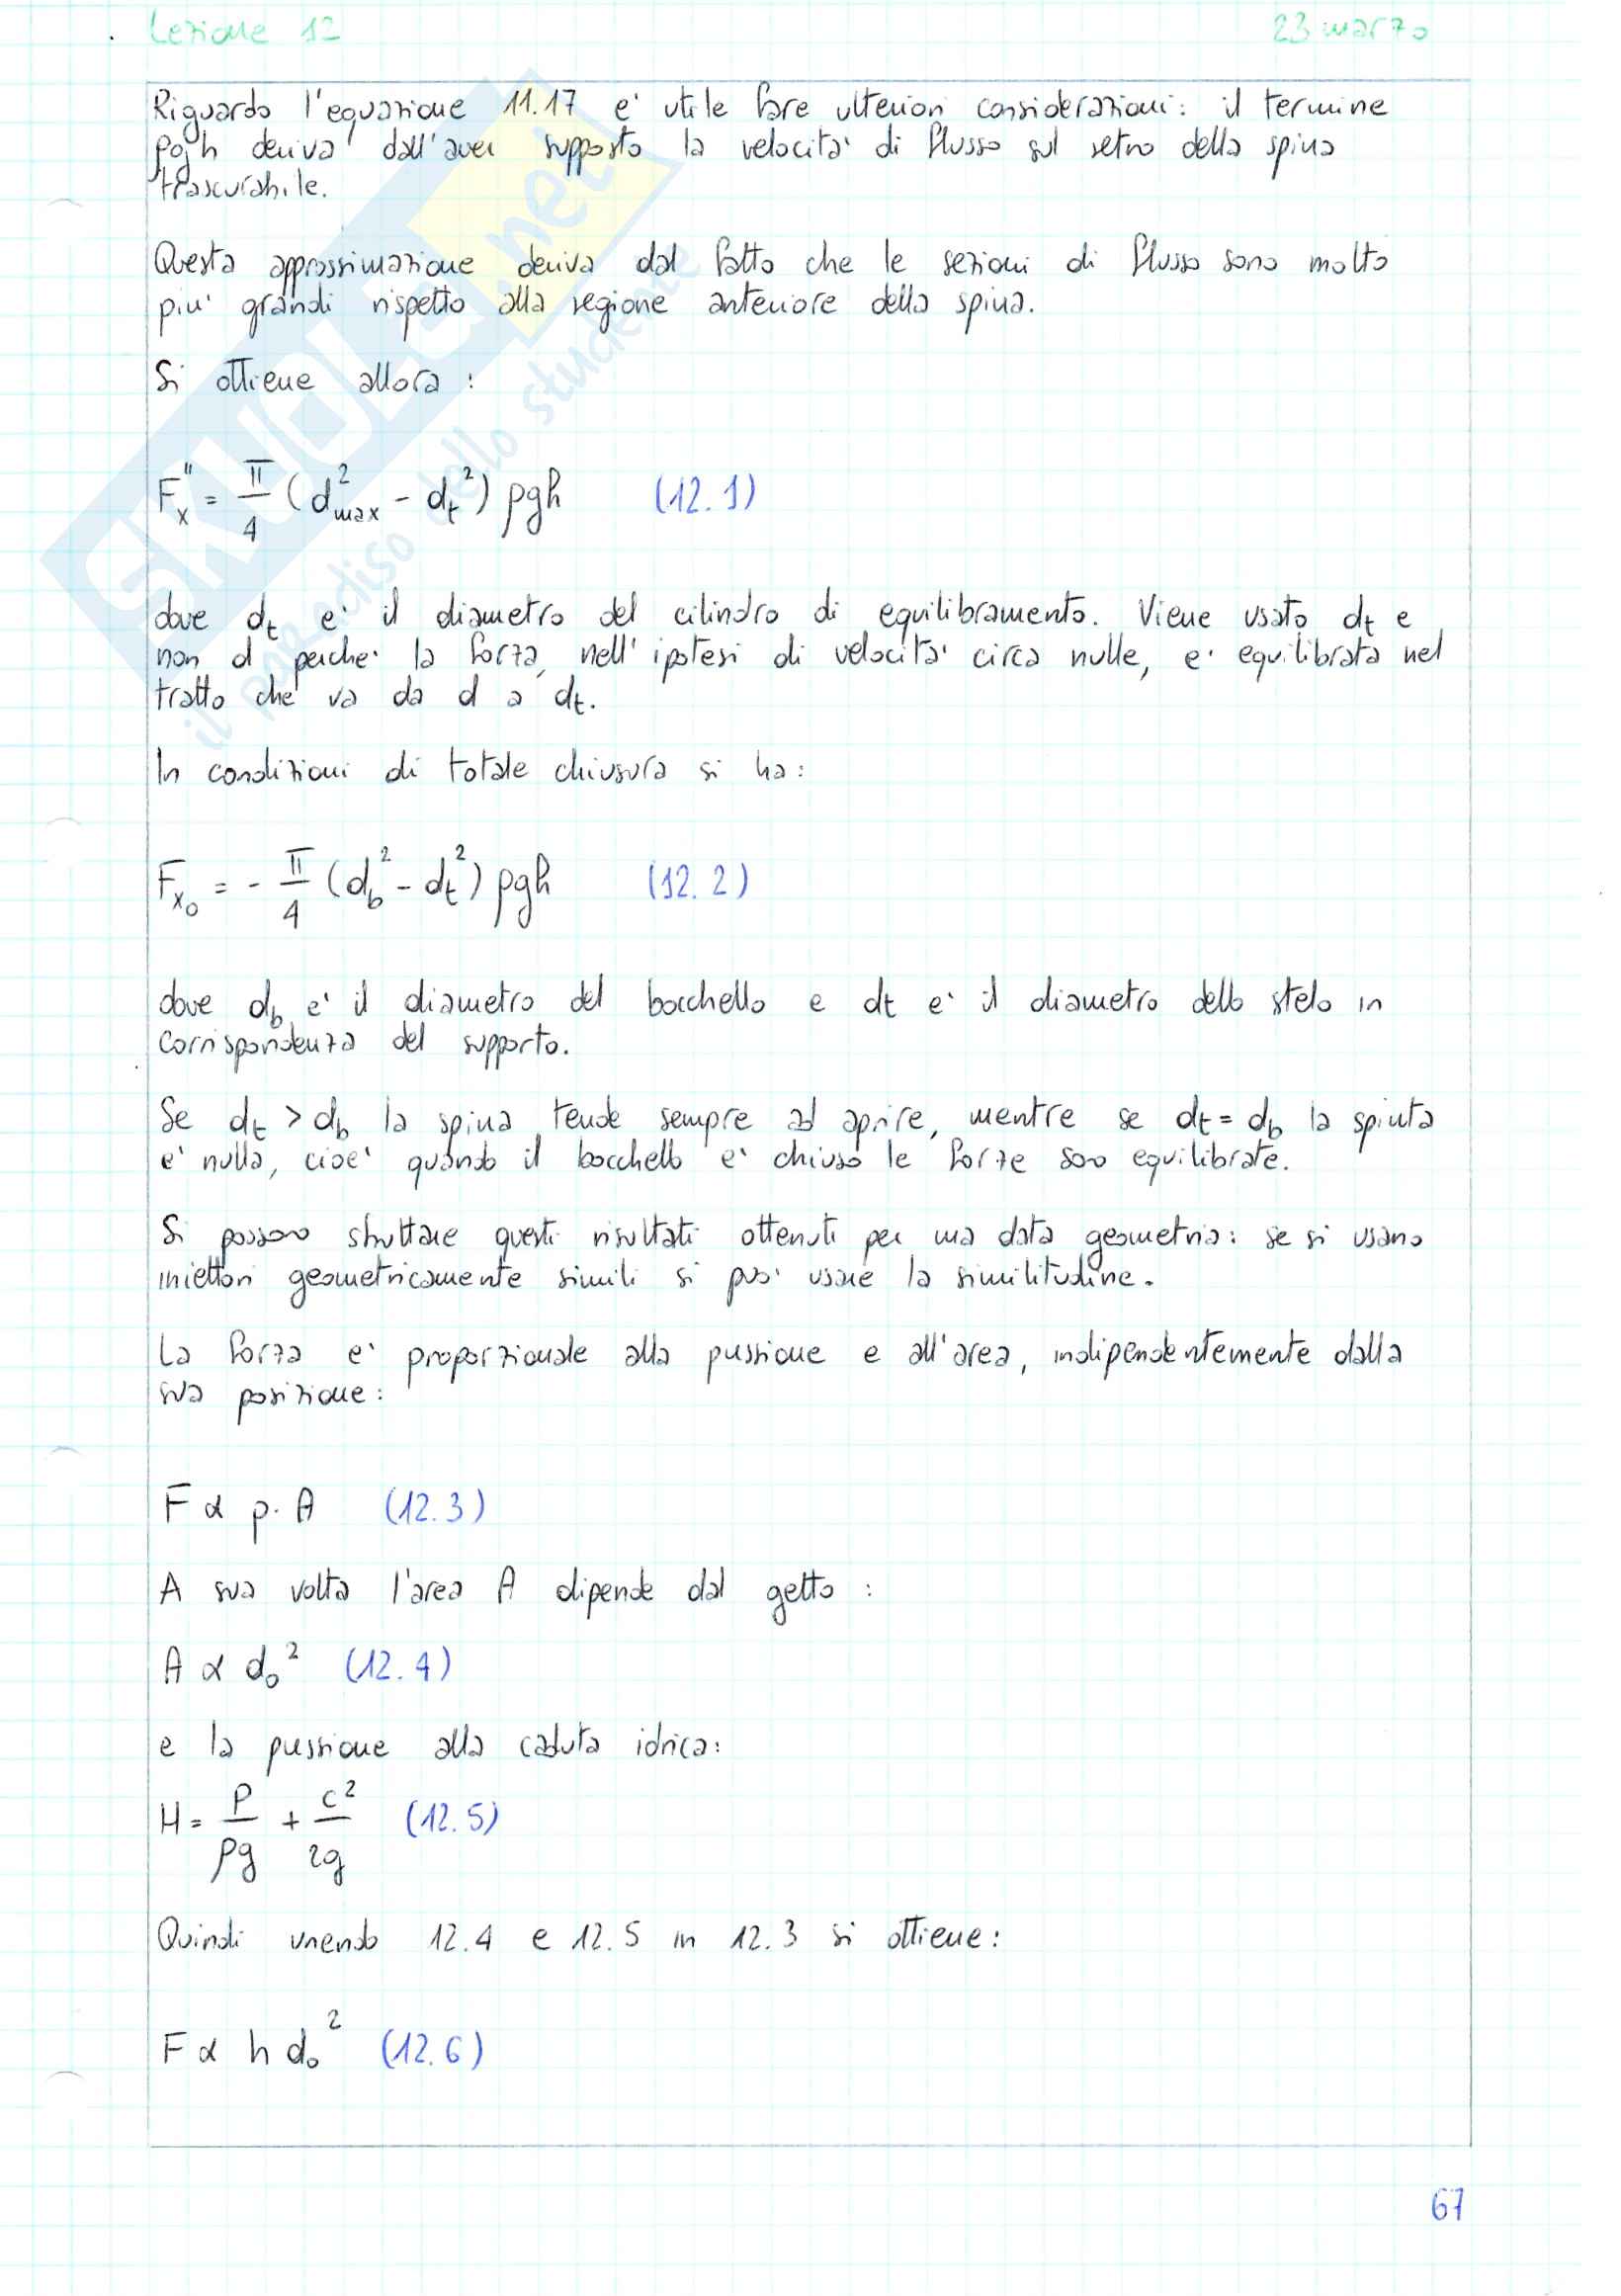 Lezione 12
23 marzo
Riguardo l'equazione 11.17 e' utile fare ulteriori considerazioni: il termine
ρgh deriva dall'aver supposto la velocita' di flusso sul retro della spina
trascurabile.
Questa approssimazione deriva dal fatto che le sezioni di flusso sono molto
piu' grandi rispetto alla regione anteriore della spina.
Si ottiene allora :
F''ₓ = π/4 (d²max - dt²) ρgh (12.1)
dove dt e' il diametro del cilindro di equilibramento. Viene usato dt e
non d perche' la forza, nell'ipotesi di velocita' circa nulle, e' equilibrata nel
tratto che va da d a dt.
In condizioni di totale chiusura si ha:
Fx₀ = - π/4 (db² - dt²) ρgh (12.2)
dove db e' il diametro del bocchello e dt e' il diametro dello stelo in
corrispondenza del supporto.
Se dt > db la spina tende sempre ad aprire, mentre se dt = db la spinta
e' nulla, cioe' quando il bocchello e' chiuso le forze sono equilibrate.
Si possono sfruttare questi risultati ottenuti per una data geometria: se si usano
iniettori geometricamente simili si puo' usare la similitudine.
La forza e' proporzionale alla pressione e all'area, indipendentemente dalla
sua posizione:
F ∝ p · A (12.3)
A sua volta l'area A dipende dal getto :
A ∝ d₀² (12.4)
e la pressione alla caduta idrica:
H = P/ρg + c²/2g (12.5)
Quindi unendo 12.4 e 12.5 in 12.3 si ottiene:
F ∝ h d₀² (12.6)
67
SKUOLA.net
il paradiso dello studente